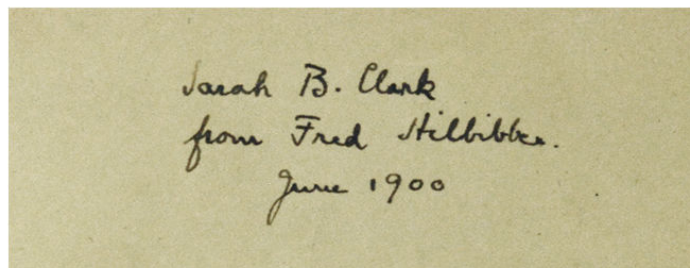 Sarah B. Clark
from Fred Hilbibber.
June 1900